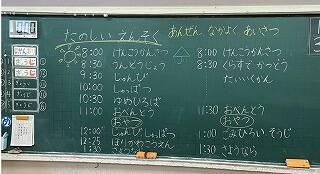 たのしい えんそく
あんぜん なかよく あいさつ
8:00 けんこうかんさつ
8:30 うんどうじょう
9:30 じゅんび
10:00 しゅっぱつ
10:30 ゆめひろば
11:00 おべんとう
おやつ
12:00 じゅんび しゅっぱつ
12:25 ほりかわこうえん
1:30
8:00 けんこうかんさつ
8:30 くらすで かつどう
たいいくかん
11:30 おべんとう
おやつ
1:00 ごみひろい そうじ
1:30 さようなら